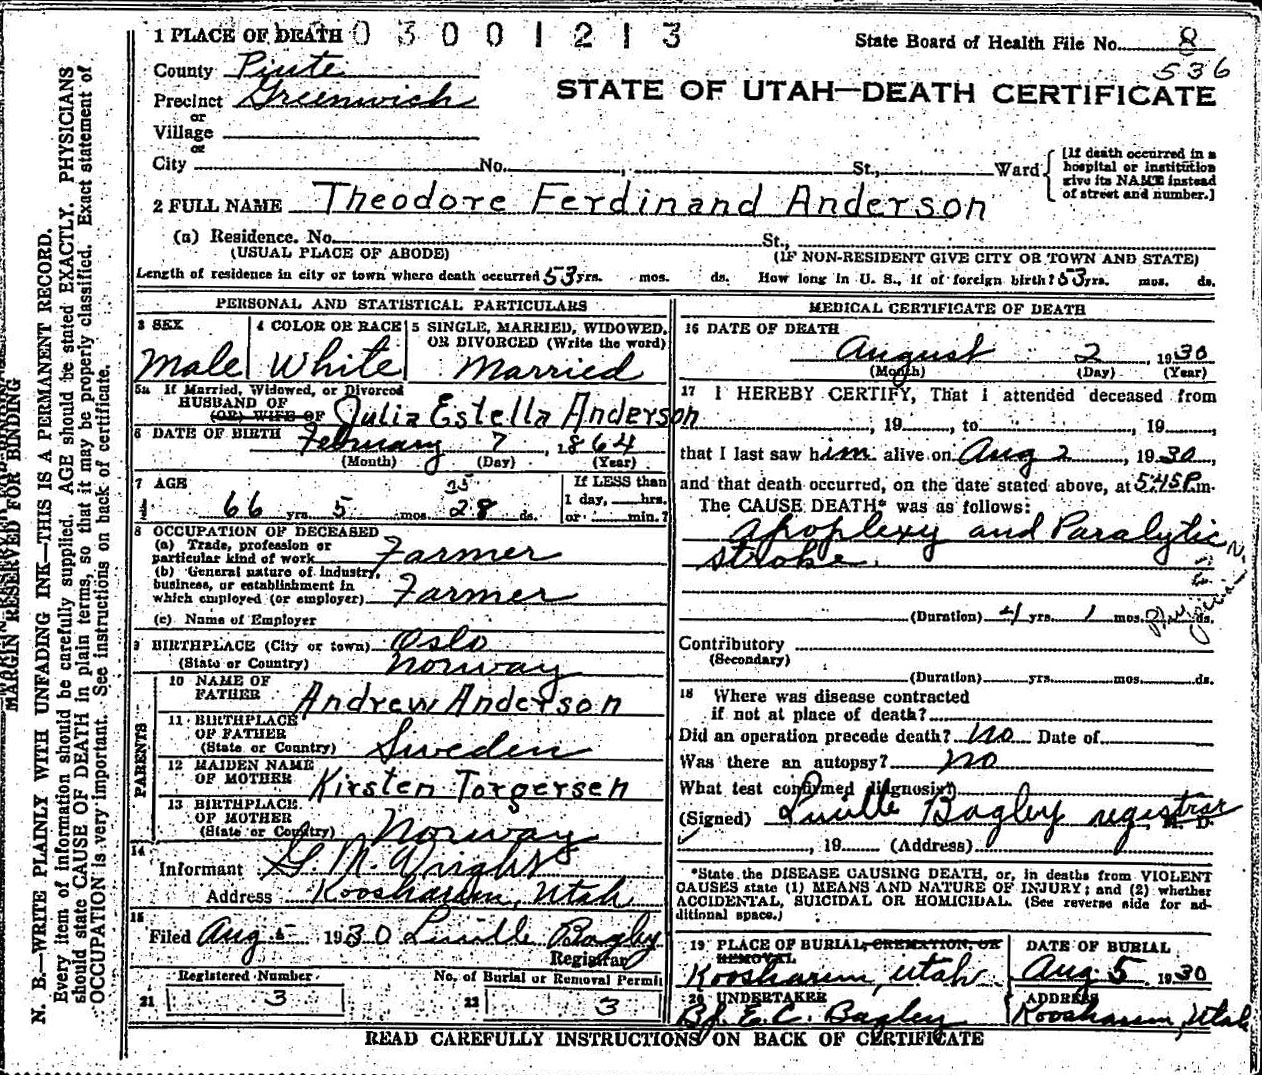 1 PLACE OF DEATH 03001213
State Board of Health File No. 8
536
County Piute
Precinct Greenwich
or
Village
or
City No. St., Ward
[If death occurred in a hospital or institution give its NAME instead of street and number.]
STATE OF UTAH—DEATH CERTIFICATE
2 FULL NAME Theodore Ferdinand Anderson
(a) Residence. No. St.,
(USUAL PLACE OF ABODE) (IF NON-RESIDENT GIVE CITY OR TOWN AND STATE)
Length of residence in city or town where death occurred 53 yrs. mos. ds. How long in U. S., if of foreign birth? 53 yrs. mos. ds.
PERSONAL AND STATISTICAL PARTICULARS
3 SEX 4 COLOR OR RACE 5 SINGLE, MARRIED, WIDOWED, OR DIVORCED (Write the word)
Male White Married
5a If Married, Widowed, or Divorced
HUSBAND OF
(OR) WIFE OF Julia Estella Anderson
6 DATE OF BIRTH February 7, 1864
(Month) (Day) (Year)
7 AGE If LESS than
1 day, hrs.
or min.?
25
66 yrs. 5 mos. 28 ds.
8 OCCUPATION OF DECEASED
(a) Trade, profession or
particular kind of work Farmer
(b) General nature of industry,
business, or establishment in
which employed (or employer) Farmer
(c) Name of Employer
9 BIRTHPLACE (City or town) Oslo
(State or Country) Norway
PARENTS
10 NAME OF
FATHER Andrew Anderson
11 BIRTHPLACE
OF FATHER
(State or Country) Sweden
12 MAIDEN NAME
OF MOTHER Kirsten Torgersen
13 BIRTHPLACE
OF MOTHER
(State or Country) Norway
14
Informant G. M. Wright
Address Koosharem, Utah
15
Filed Aug 5 1930 Luville Bagley
Registrar
Registered Number No. of Burial or Removal Permit
21 3 22 3
MEDICAL CERTIFICATE OF DEATH
16 DATE OF DEATH
August 2, 1930
(Month) (Day) (Year)
17 I HEREBY CERTIFY, That I attended deceased from
, 19 , to , 19 ,
that I last saw him alive on Aug 2, 1930,
and that death occurred, on the date stated above, at 5:45 P.m.
The CAUSE DEATH* was as follows:
Apoplexy and Paralytic
stroke.
(Duration) 4 yrs. 1 mos. ds.
Contributory
(Secondary)
(Duration) yrs. mos. ds.
18 Where was disease contracted
if not at place of death?
Did an operation precede death? No Date of
Was there an autopsy? No
What test confirmed diagnosis?
(Signed) Luville Bagley registrar M. D.
, 19 (Address)
*State the DISEASE CAUSING DEATH, or, in deaths from VIOLENT
CAUSES state (1) MEANS AND NATURE OF INJURY; and (2) whether
ACCIDENTAL, SUICIDAL OR HOMICIDAL. (See reverse side for ad-
ditional space.)
19 PLACE OF BURIAL, CREMATION, OR
REMOVAL
Koosharem, Utah
DATE OF BURIAL
Aug. 5 1930
20 UNDERTAKER
By E. C. Bagley
ADDRESS
Koosharem, Utah
READ CAREFULLY INSTRUCTIONS ON BACK OF CERTIFICATE
MARGIN RESERVED FOR BINDING
N. B.—WRITE PLAINLY WITH UNFADING INK—THIS IS A PERMANENT RECORD.
Every item of information should be carefully supplied. AGE should be stated EXACTLY. PHYSICIANS
should state CAUSE OF DEATH in plain terms, so that it may be properly classified. Exact statement of
OCCUPATION is very important. See instructions on back of certificate.